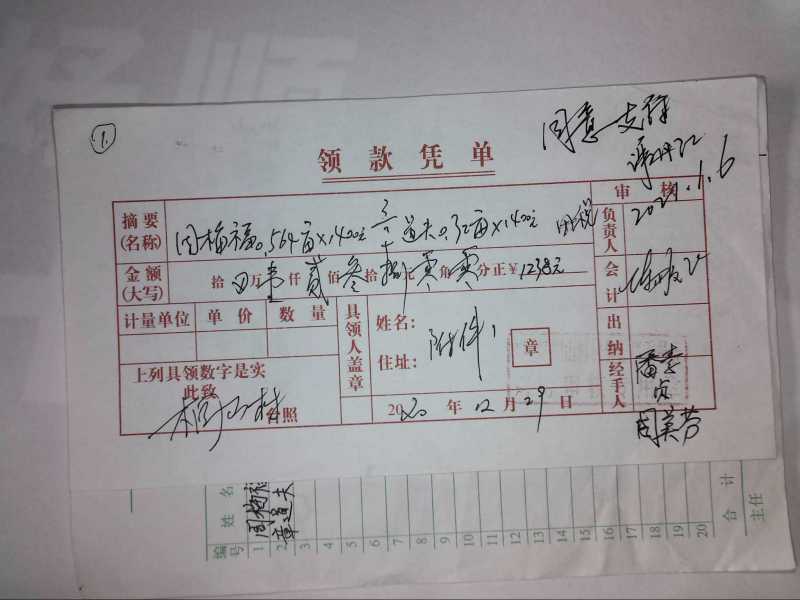 1.
同意支付
2021.1.6
领款凭单
审核
摘要(名称) 周梅福0.564亩×1400元 道夫0.32亩×1400元
负责人
金额(大写) 拾 万壹仟贰佰叁拾捌元零角零分正¥1238元
会计
计量单位 单价 数量
具领人盖章
姓名: 附件1
住址:
章
出纳
上列具领数字是实
此致
台照
2020年12月29日
经手人
潘素贞
周美芬
编号 姓名
1 周梅福
2 章道夫
3
4
5
6
7
8
9
10
11
12
13
14
15
16
17
18
19
20
合计
主任